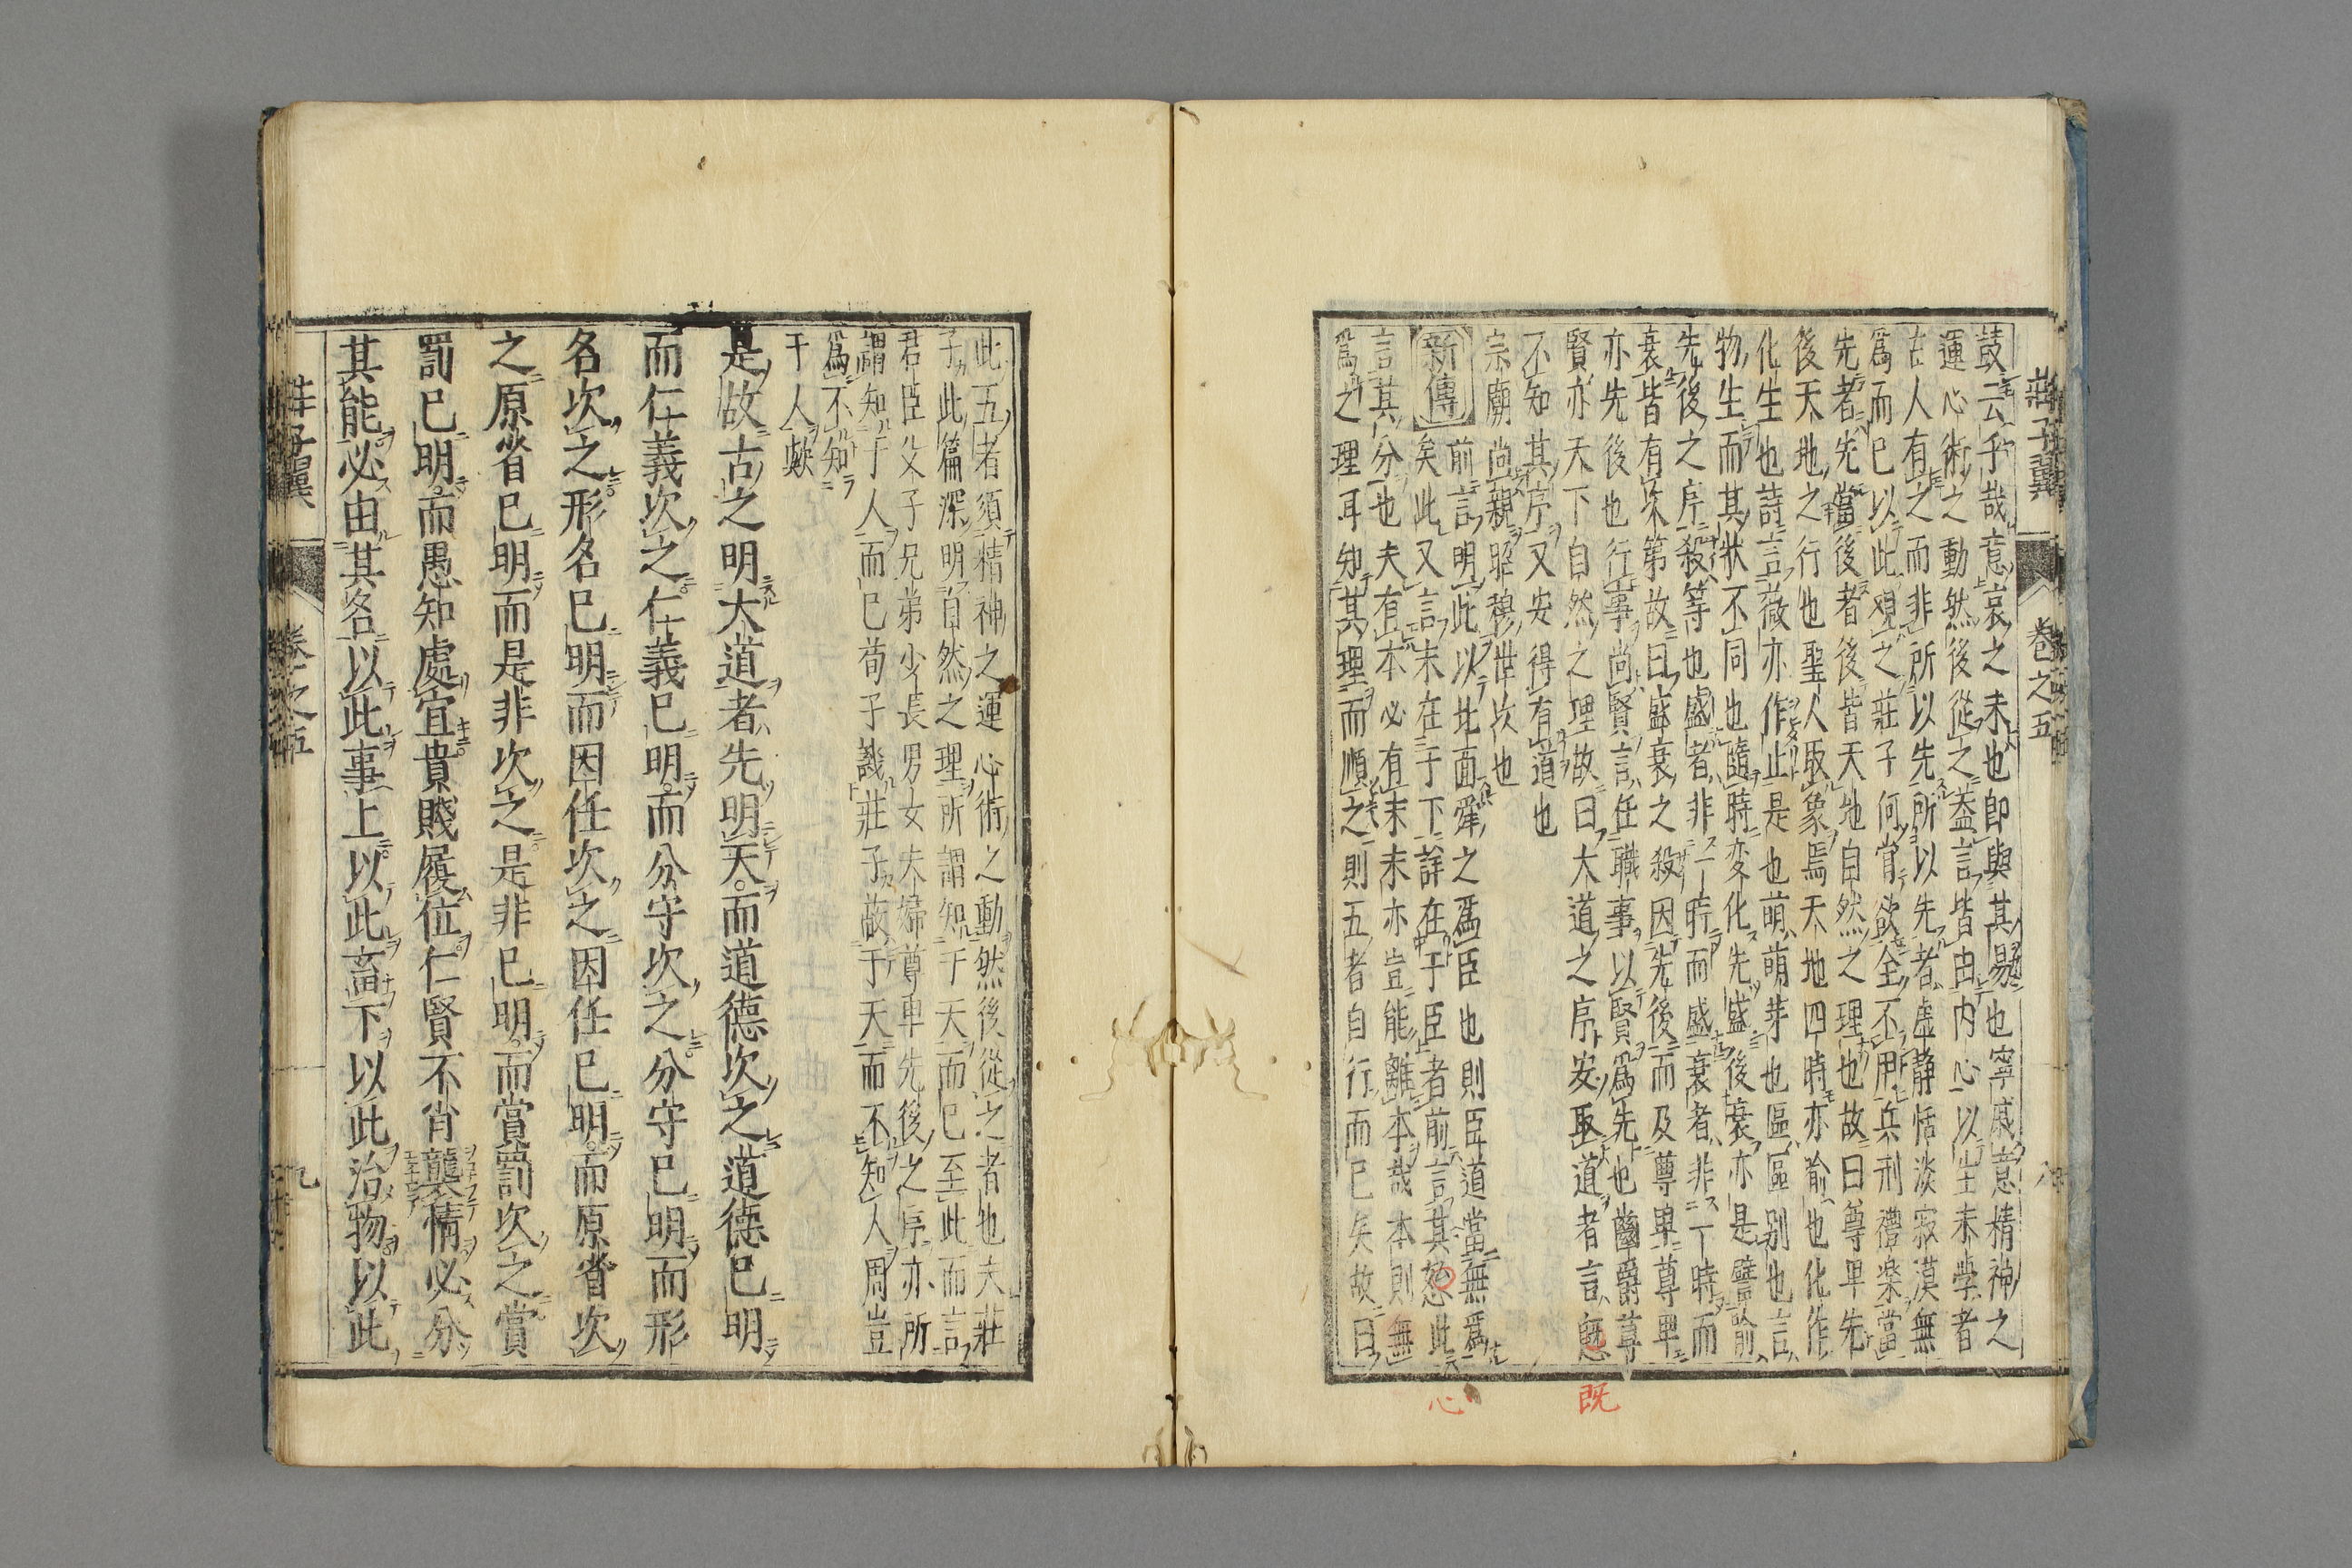 莊子翼　卷之五　八
鼓云乎哉意哀之末也即與其易也寧戚意精神之
運心術之動然後從之蓋言皆由内心以生末學者
古人有之而非所以先所以先者虛靜恬淡寂漠無
爲而已以此觀之莊子何甞欲全不用兵刑禮楽當
先者先當後者後皆天地自然之理也故曰尊卑先
後天地之行也聖人取象焉天地四時亦喻也化作
化生也詩言薇亦作止是也萌萌芽也區區别也言
物生而其狀不同也隨時変化先盛後衰亦是譬喻
先後之序殺等也盛者非一時而盛衰者非一時而
衰皆有次第故曰盛衰之殺因先後而及尊卑尊卑
亦先後也行事尚賢言任職事以賢爲先也齒爵尊
賢亦天下自然之理故曰大道之序安取道者言旣
不知其序又安得有道也
宗廟尚親昭穆世次也
新傳
前言明此以北面舜之爲臣也則臣道當無爲
矣此又言末在于下詳在于臣者前言其怒此
言其分也夫有本必有末末亦豈能離本哉本則無
爲之理耳知其理而順之則五者自行而已矣故曰
心
既
此五者須精神之運心術之動然後從之者也夫莊
子此篇深明自然之理所謂知于天而已至此而言
君臣父子兄弟少長男女夫婦尊卑先後之序亦所
謂知于人而已荀子譏莊子故于天而不知人周豈
爲不知
于人歟
是故古之明大道者先明天而道德次之道德已明
而仁義次之仁義已明而分守次之分守已明而形
名次之形名已明而因任次之因任已明而原省次
之原省已明而是非次之是非已明而賞罰次之賞
罰已明而愚知處宜貴賤履位仁賢不肖襲情必分
其能必由其名以此事上以此畜下以此治物以此
莊子翼　卷之五　九